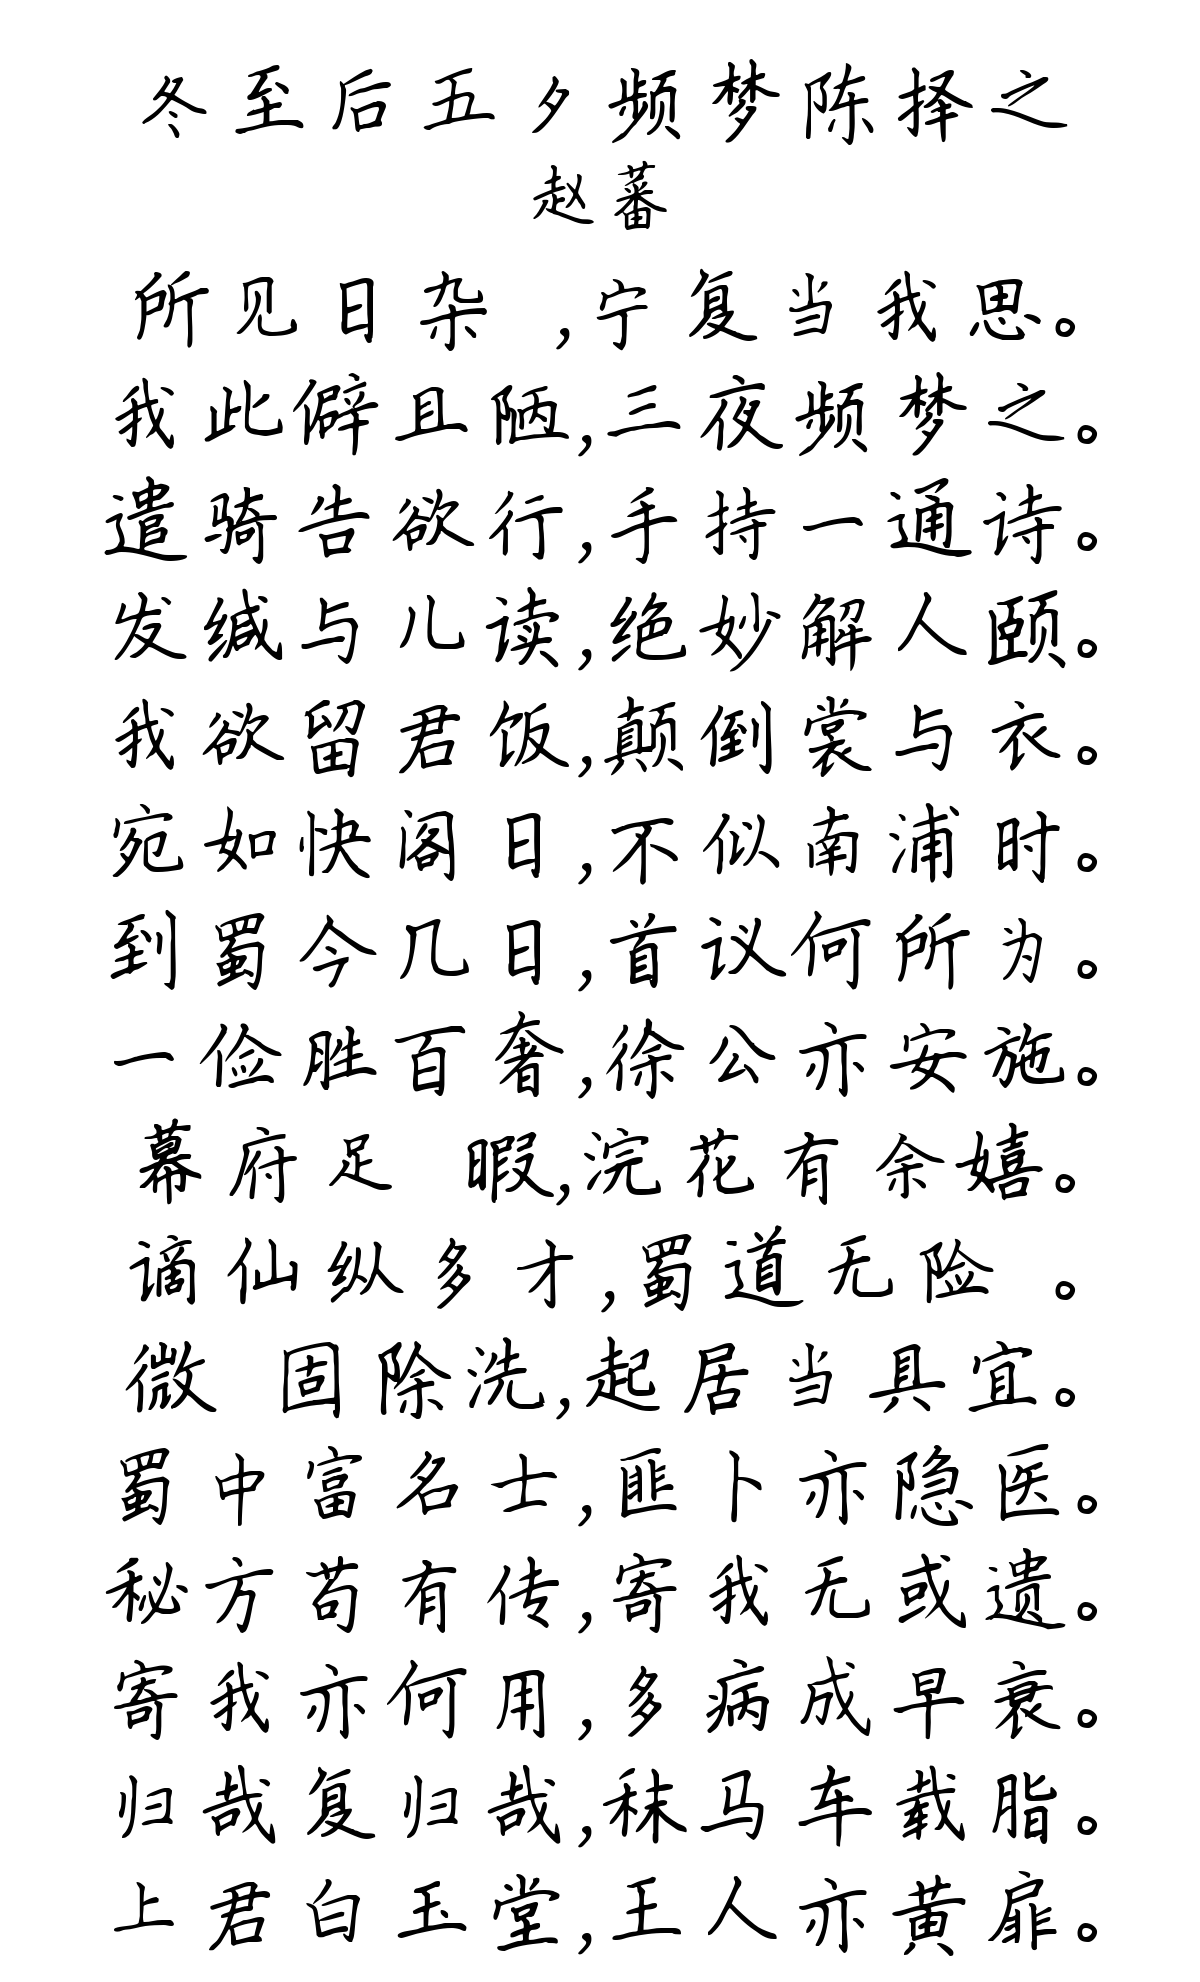 冬至后五夕频梦陈择之
赵蕃
所见日杂 ,宁复当我思。
我此僻且陋,三夜频梦之。
遣骑告欲行,手持一通诗。
发缄与儿读,绝妙解人颐。
我欲留君饭,颠倒裳与衣。
宛如快阁日,不似南浦时。
到蜀今几日,首议何所为。
一俭胜百奢,徐公亦安施。
幕府足 暇,浣花有余嬉。
谪仙纵多才,蜀道无险 。
微 固除洗,起居当具宜。
蜀中富名士,匪卜亦隐医。
秘方苟有传,寄我无或遗。
寄我亦何用,多病成早衰。
归哉复归哉,秣马车载脂。
上君白玉堂,王人亦黄扉。